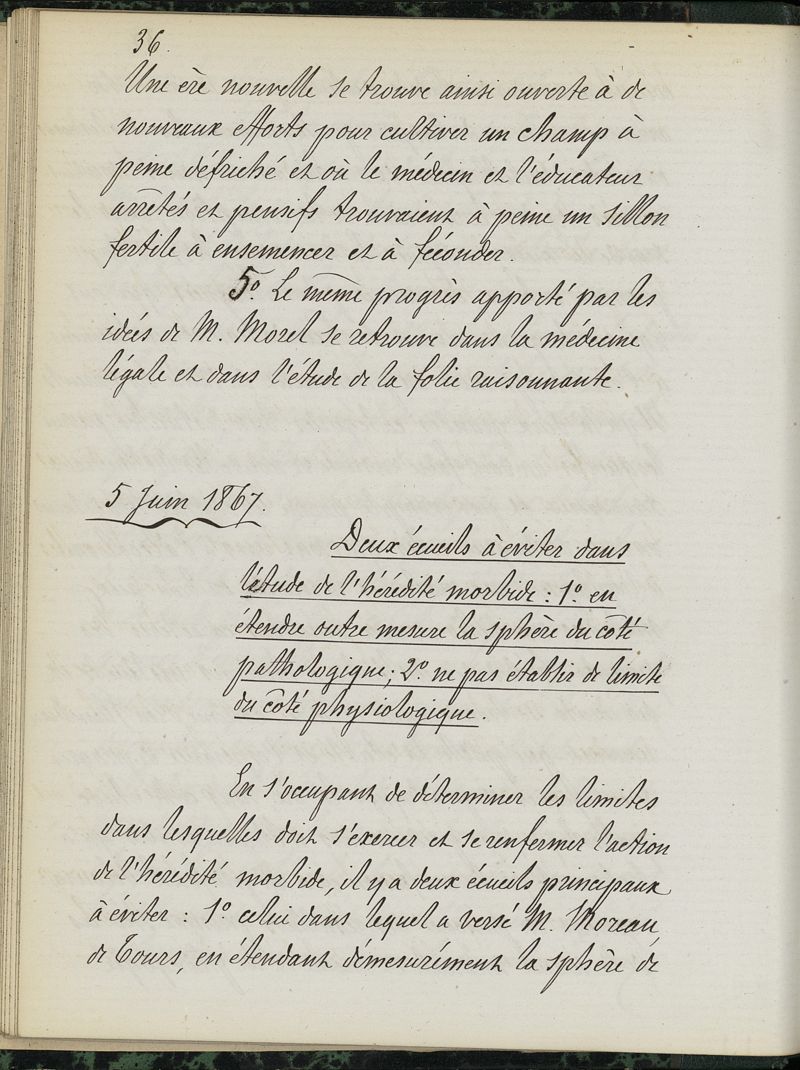 36.
Une ère nouvelle se trouve ainsi ouverte à de
nouveaux efforts pour cultiver un champ à
peine défriché et où le médecin et l'éducateur
arrêtés et pensifs trouvaient à peine un sillon
fertile à ensemencer et à féconder.
5º. Le même progrès apporté par les
idées de M. Morel se retrouve dans la médecine
légale et dans l'étude de la folie raisonnante.
5 Juin 1867.
Deux écueils à éviter dans
l'étude de l'hérédité morbide : 1º. en
étendre outre mesure la sphère du côté
pathologique ; 2º. ne pas établir de limite
du côté physiologique.
En s'occupant de déterminer les limites
dans lesquelles doit s'exercer et se renfermer l'action
de l'hérédité morbide, il y a deux écueils principaux
à éviter : 1º celui dans lequel a versé M. Moreau,
de Tours, en étendant démesurément la sphère de